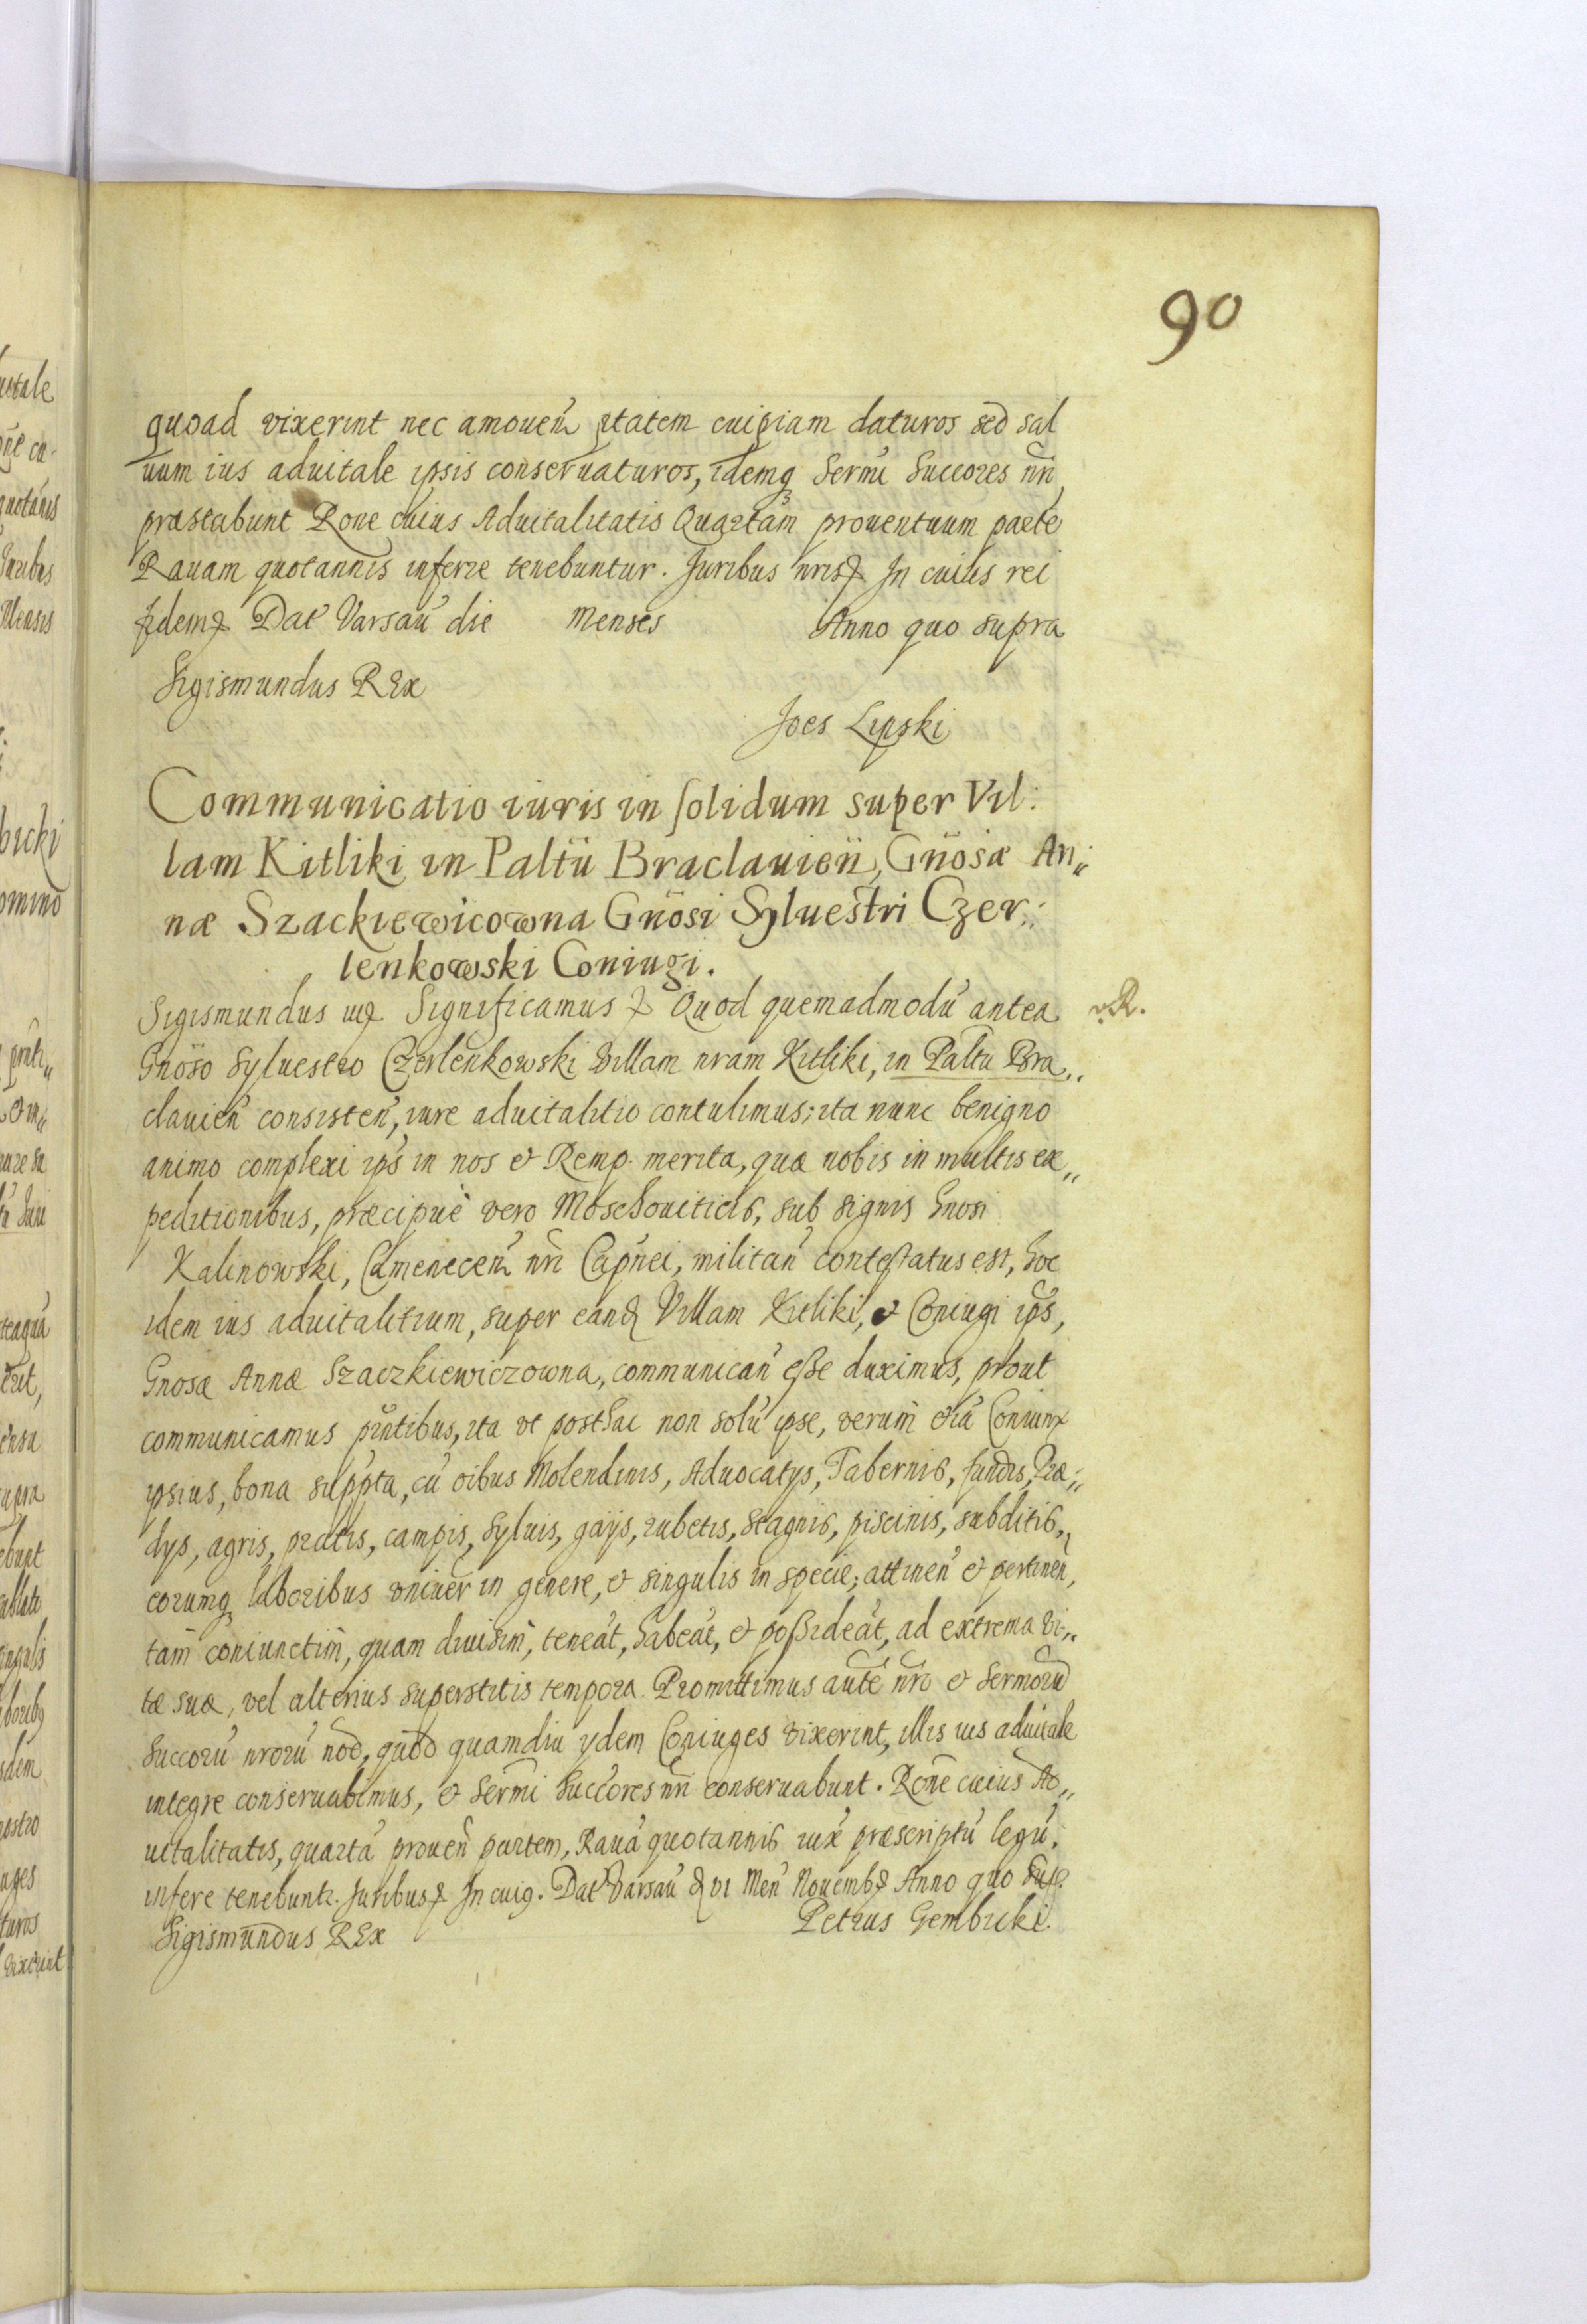 90
quoad vixerint nec amoueñ ptatem cuipiam daturos sed sal
uum ius aduitale ipsis conseruaturos, idemq Sermi Succores nri
præstabunt Rone cuius Aduitalitatis Quartam prouentuum parte
Rauam quotannis inferre tenebuntur. Juribus nris & In cuius rei
fidem & Dat Varsau die Menses Anno quo supra
Sigismundus REx
Joes Lipski
Communicatio iuris in solidum super Vil:
lam Kitliki in Paltü Braclauieñ, Gñosæ An„
næ Szackiewicowna Gñosi Syluestri Czer:
lenkowski Coniugi.
Sigismundus Significamus & Quod quemadmodu antea R.
Gñoso Syluestro Czerlenkowski Villam nram Kitliki, in Paltu Bra„
clauieñ consisteñ, iure aduitalitio contulimus; ita nunc benigno
animo complexi ips in nos et Remp. merita, quæ nobis in multis ex„
peditionibus, præcipuè vero Moschouiticis, sub signis Gnosi
Kalinowski, Cameneceñ nri Capnei, militañ contestatus est, hoc
idem ius aduitalitium, super eand Villam Kitliki, et Coniugi ips,
Gnosæ Annæ Szaczkiewiczowna, communicañ esse duximus, prout
communicamus pñtibus, ita vt posthac non solu ipse, verum etia Coniunx
ipsius, bona suppta, cu oibus Molendinis, Aduocatys, Tabernis, fundis, Præ„
dys, agris, pratis, campis, Syluis, gaijs, rubetis, stagnis, piscinis, subditis,
eorumq laboribus vniuer in genere, et singulis in specie; attineñ et pertineñ,
tam coniunctim, quam diuisim, teneat, habeat, et possideat, ad extrema vi„
tæ suæ, vel alterius superstitis tempora. Promittimus aute nro et Sermoru
Succoru nroru noe, quod quamdiu ydem Coniuges vixerint, illis ius aduitale
integre conseruabimus, et Sermi Succores nri conseruabunt. Rone cuius Ad„
uitalitatis, quarta proueñ partem, Raua quotannis iux præscriptu legu,
infere tenebuntr. Juribus & In cuiq. Dat Varsau d VI Meñ Nouemb Anno quo sup.
Petrus Gembicki.
Sigismundus REx